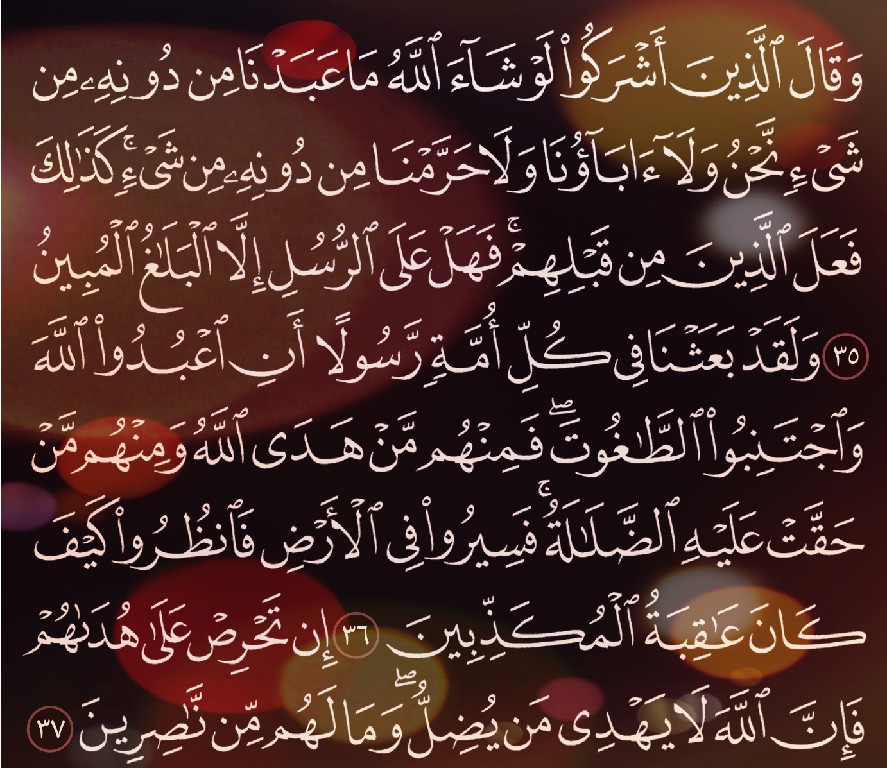 وَقَالَ ٱلَّذِينَ أَشْرَكُوا۟ لَوْ شَآءَ ٱللَّهُ مَا عَبَدْنَا مِن دُونِهِۦ مِن
شَىْءٍ نَّحْنُ وَلَآ ءَابَآؤُنَا وَلَا حَرَّمْنَا مِن دُونِهِۦ مِن شَىْءٍ ۚ كَذَٰلِكَ
فَعَلَ ٱلَّذِينَ مِن قَبْلِهِمْ ۚ فَهَلْ عَلَى ٱلرُّسُلِ إِلَّا ٱلْبَلَٰغُ ٱلْمُبِينُ
٣٥ وَلَقَدْ بَعَثْنَا فِى كُلِّ أُمَّةٍ رَّسُولًا أَنِ ٱعْبُدُوا۟ ٱللَّهَ
وَٱجْتَنِبُوا۟ ٱلطَّٰغُوتَ ۖ فَمِنْهُم مَّنْ هَدَى ٱللَّهُ وَمِنْهُم مَّنْ
حَقَّتْ عَلَيْهِ ٱلضَّلَٰلَةُ ۚ فَسِيرُوا۟ فِى ٱلْأَرْضِ فَٱنظُرُوا۟ كَيْفَ
كَانَ عَٰقِبَةُ ٱلْمُكَذِّبِينَ ٣٦ إِن تَحْرِصْ عَلَىٰ هُدَىٰهُمْ
فَإِنَّ ٱللَّهَ لَا يَهْدِى مَن يُضِلُّ ۖ وَمَا لَهُم مِّن نَّٰصِرِينَ ٣٧